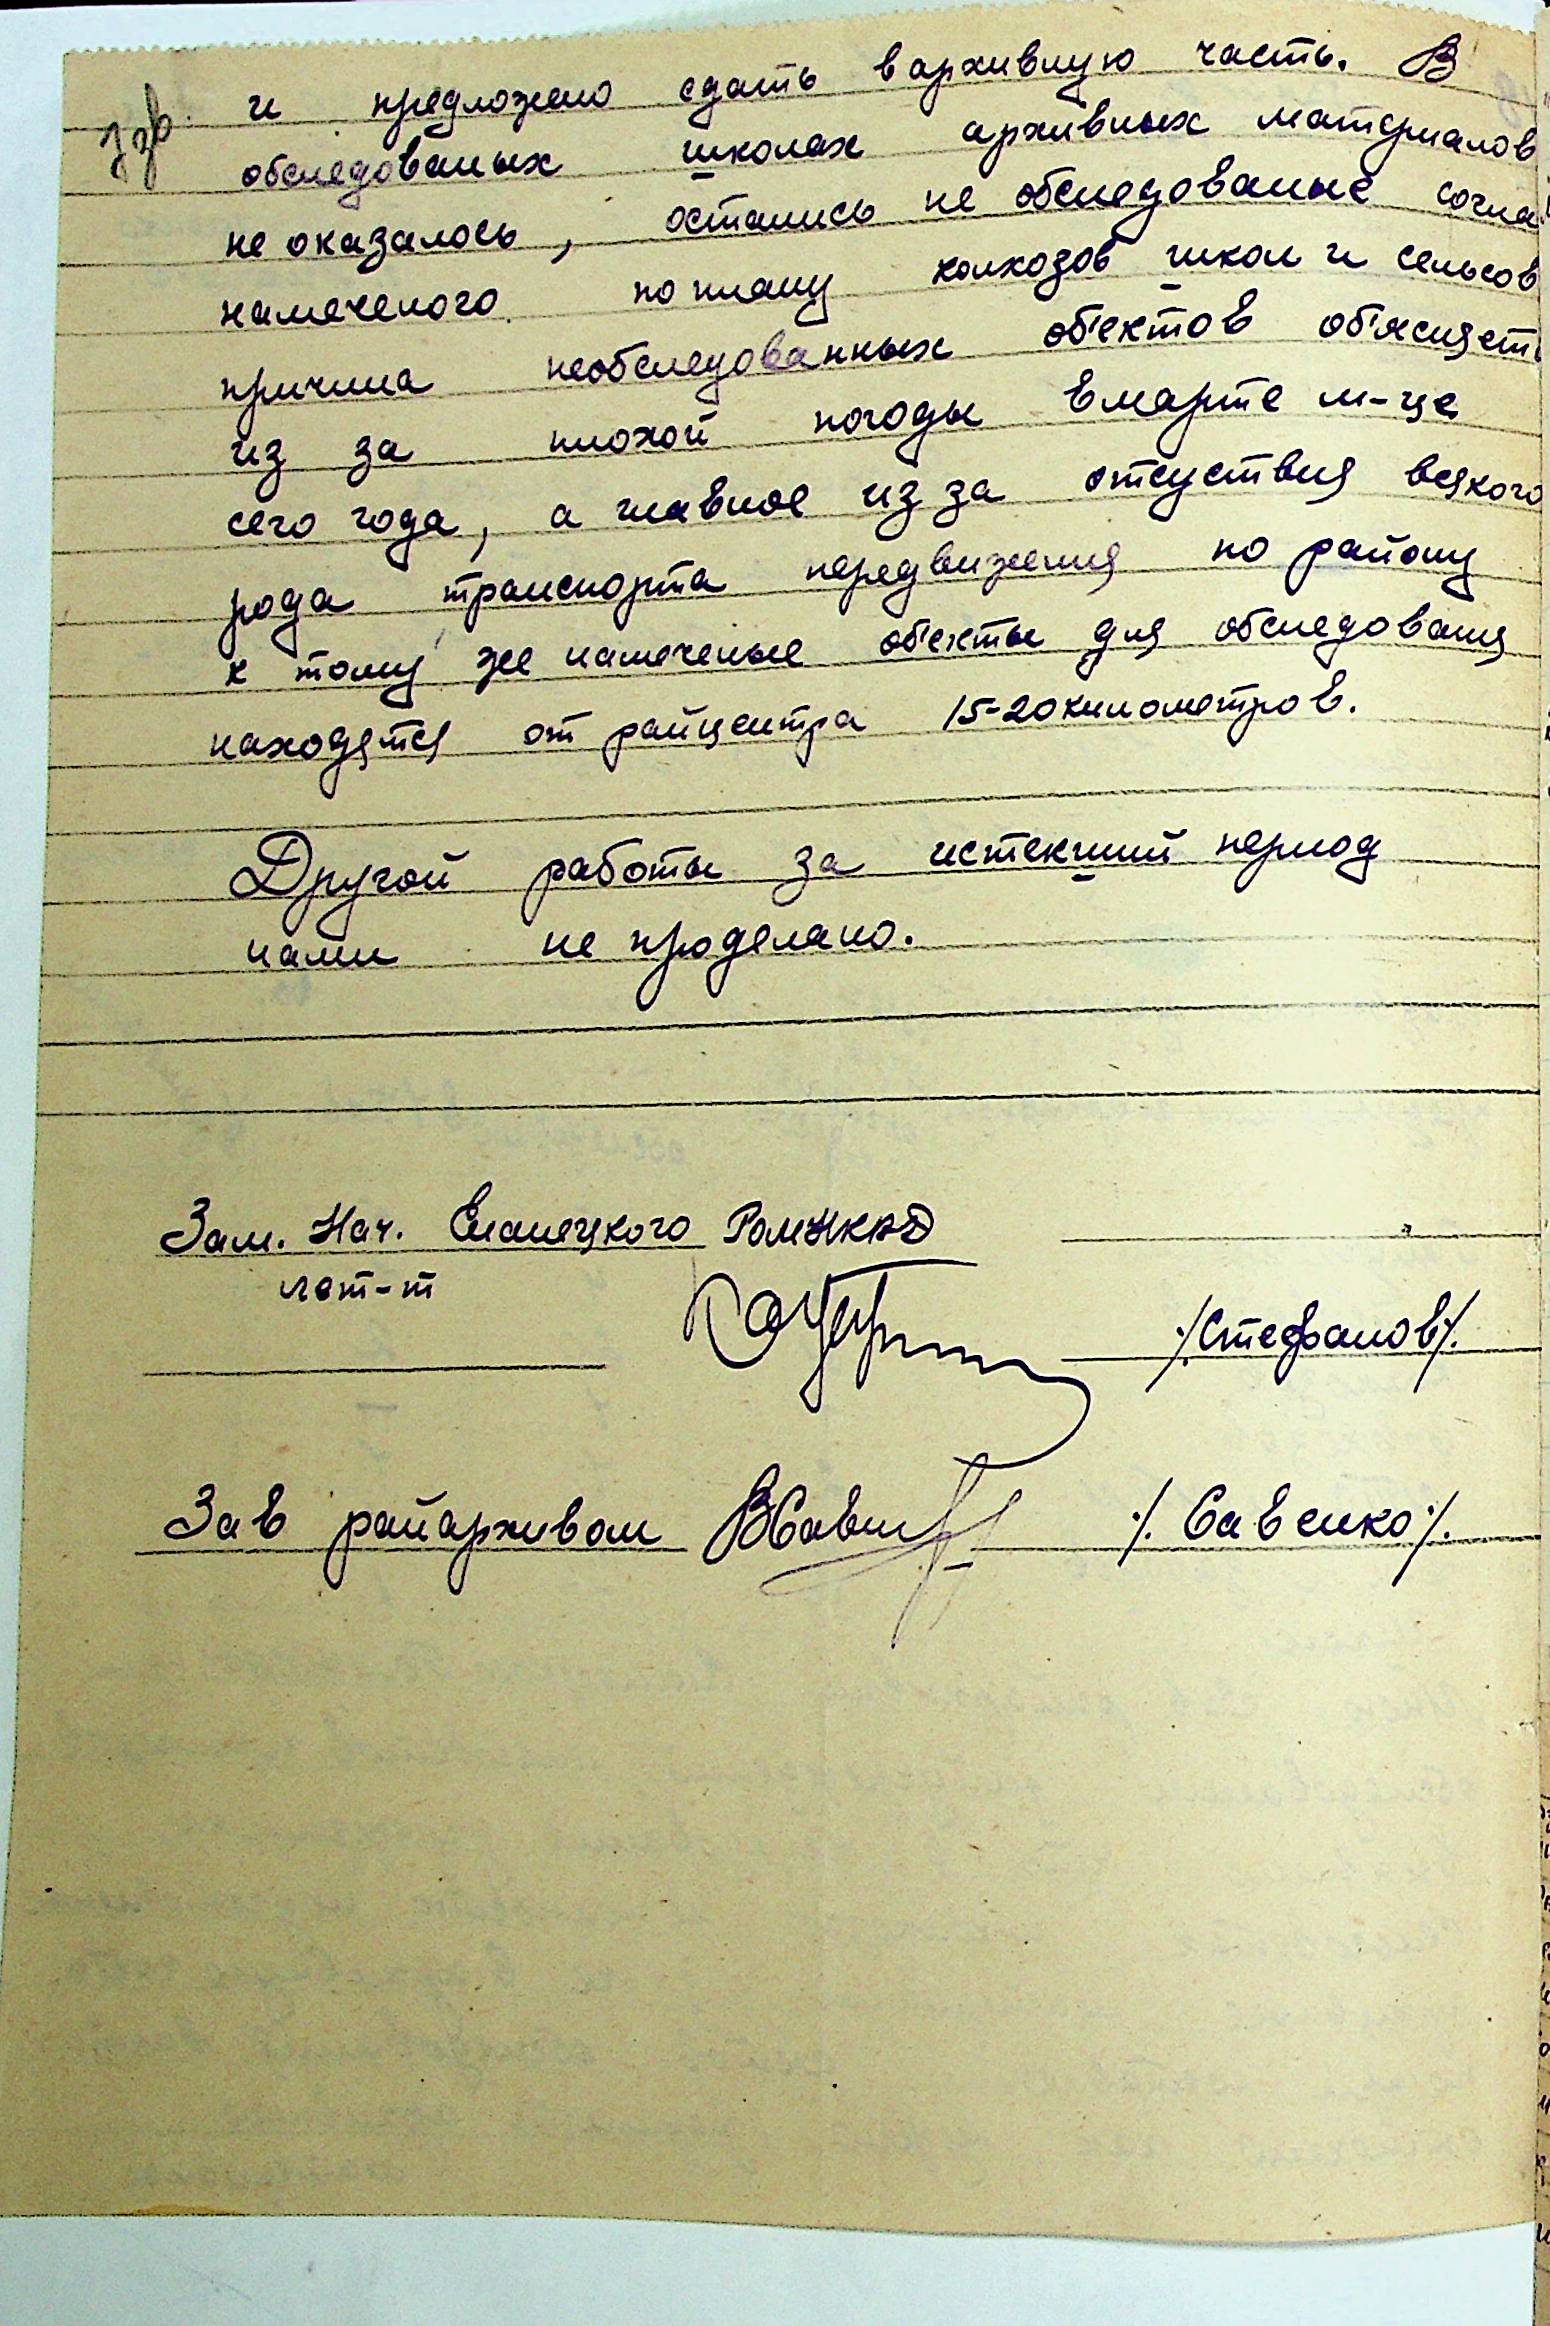 и предложено сдать в архивную часть. В
обследованых школах архивных материалов
не оказалось, остались не обследованые согла
намеченого по плану колхозов школ и сельсов
причина необследованных обектов обясняеть
из за плохой погоды в марте м-це
сего года, а главное из за отсуствия всякого
рода транспорта передвижения по району
к тому же намеченые обекты для обследования
находятся от райцентра 15-20 километров.
Другой работы за истекший период
нами не проделано.
Зам. Нач. Еланецкого РОМНКВД
лет-т
/.Стефанов/.
Зав райархивом ./. Савенко ./.